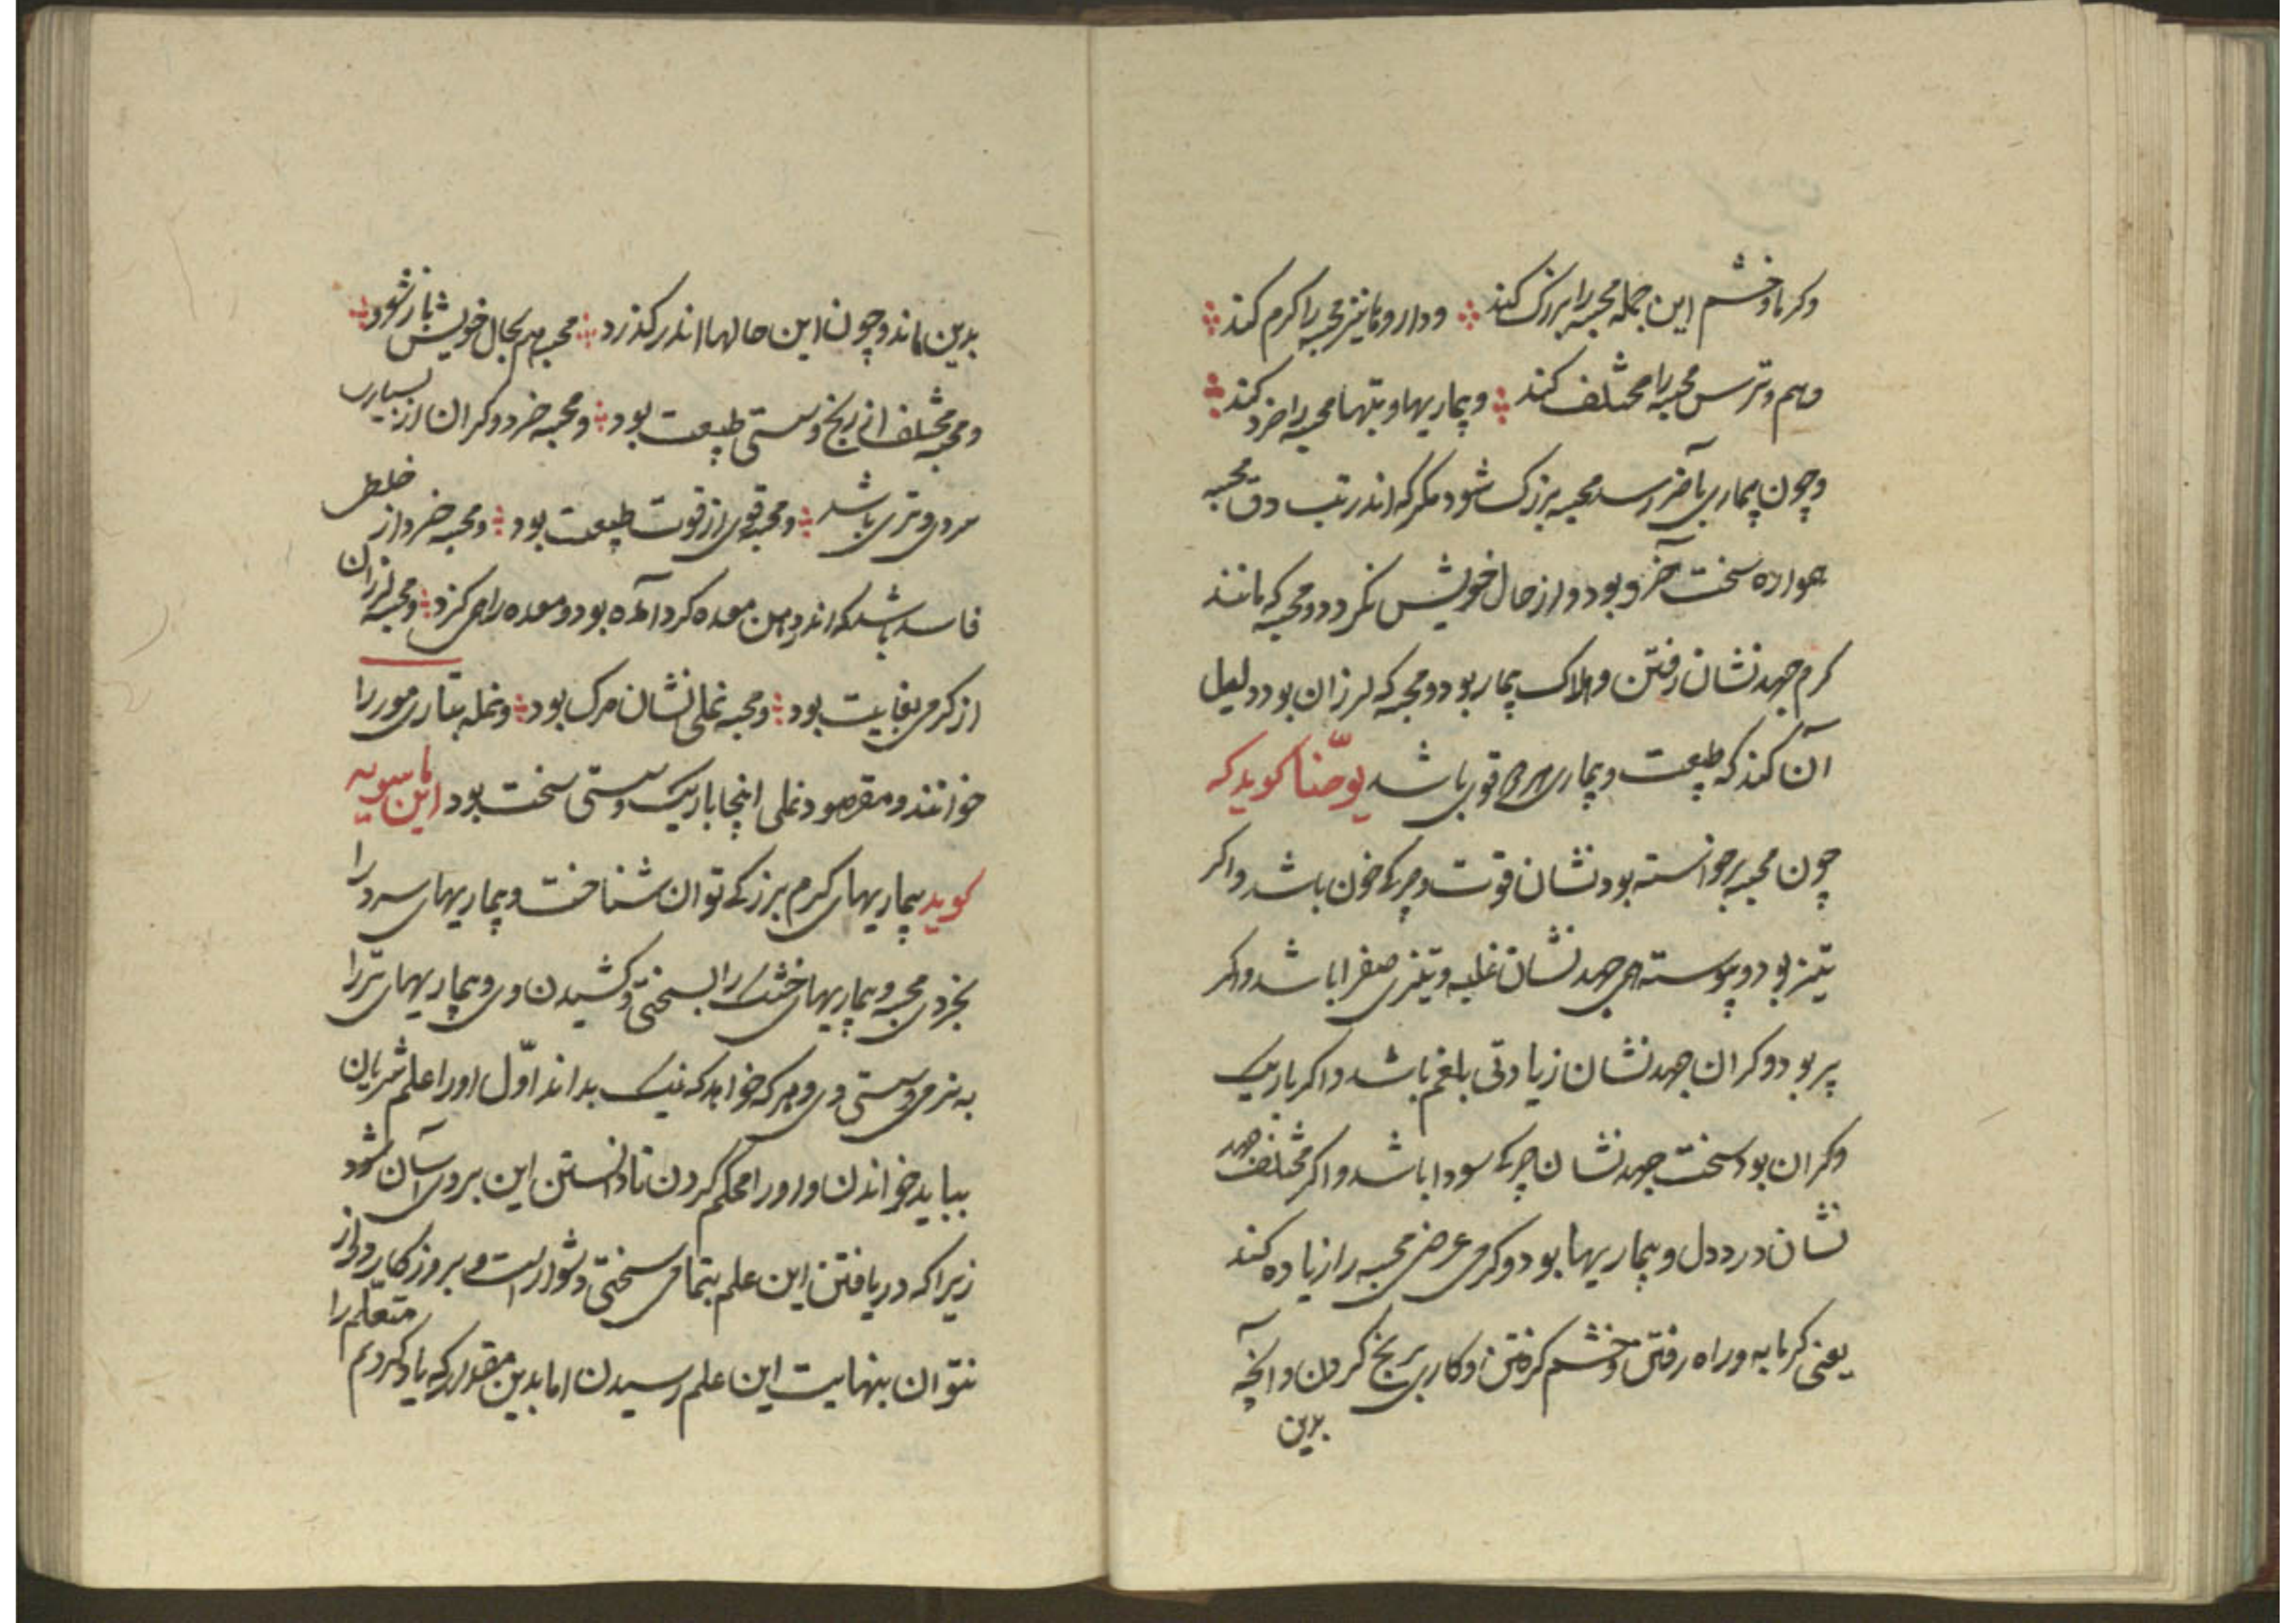 وکرما وخشم این جمله مجسه را بزرک کند ؞ وداروها نیز مجسه را کرم کند ؞
وهم وترس مجسه را مختلف کند ؞ وبیماریها وتبها مجسه را خرد کند ؞
وچون بیماری بآخر رسد مجسه بزرک شود مکر که اندر تب دق مجسه
همواره سخت آخر وبود واز حال خویش نکردد ومجسه که مانند
کرم جهد نشان رفتن وهلاک بیمار بود ومجسه که لرزان بود دلیل
آن کند که طبیعت وبیماری هر دو قوی باشد یوحّنا کوید که
چون مجسه برجواسته بود نشان قوت وچیرکی خون باشد واکر
تیز بود وپیوسته همی جهد نشان غلبه وتیزی صفرا باشد واکر
پر بود وکران جهد نشان زیادتی بلغم باشد واکر باریک
وکران بود سخت جهد نشان چیرکی سودا باشد واکر مختلف جهد
نشان درد دل وبیماریها بود وکرمی عرضی مجسه را زیاده کند
یعنی کرمابه وراه رفتن وخشم کرفتن وکار برنج کردن وآنچه
بدین
بدین ماند وچون این حالها اندر کذرد ؞ مجسه هم بحال خویش باز شود ؞
ومجسه مختلف از رنج وسستی طبیعت بود ؞ ومجسه خرد وکران از بسیاری
سردی وتری باشد ؞ ومجسه قوی از قوت طبیعت بود ؞ ومجسه خرد از خلط
فاسد باشد که اندر دهن معده کرد آمده بود ومعده را همی کزد ؞ ومجسه لرزان
از کرمی بغایت بود ؞ ومجسه نملی نشان مرک بود ؞ ونمله بتازی مور را
خوانند ومقصود نملی اینجا باریک وسستی سخت بود ابن ماسویه
کوید بیماریهای کرم ببزرکی توان شناخت وبیماریهای سرد را
بخردی مجسه وبیماریهای خشک را بسختی وکشیدن وی وبیماریهای تر را
به نرمی وسستی وی وهر که خواهد که نیک بداند اوّل او را علم شریان
بباید خواندن واو را محکم کردن تا دانستن این بروی آسان شود
زیرا که دریافتن این علم بتمامی سختی دشوار است وبروزکار دراز
نتوان بنهایت این علم رسیدن اما بدین مقدار که یاد کردیم متعلّم را